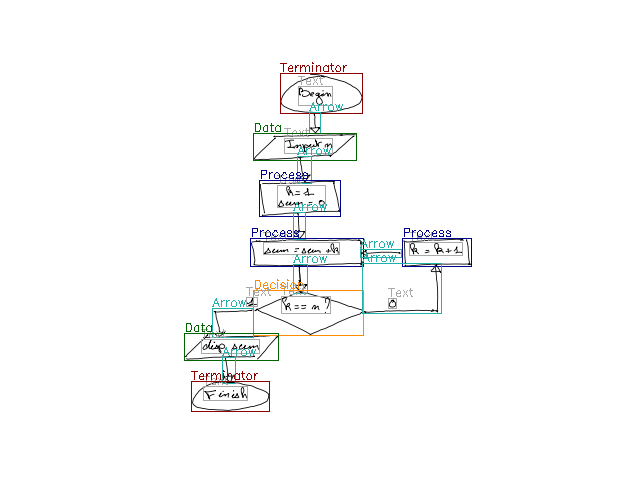 Terminator
Text
Begin
Arrow
Data
Text
Input n
Arrow
Process
k = 1
sum = 0
Arrow
Process
Process
sum = sum + k
Arrow
k = k + 1
Arrow
Arrow
Decision
Text
Text
Text
k == n ?
1
0
Arrow
Data
disp sum
Arrow
Terminator
Finish